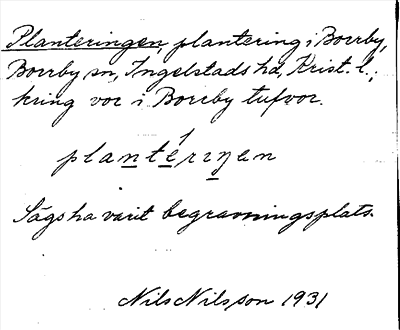 Planteringen, plantering i Borrby,
Borrby sn, Ingelstads hd, Krist. l.;
kring vor i Borrby tufvor.
plantériŋen
Sägs ha varit begravningsplats.
Nils Nilsson 1931